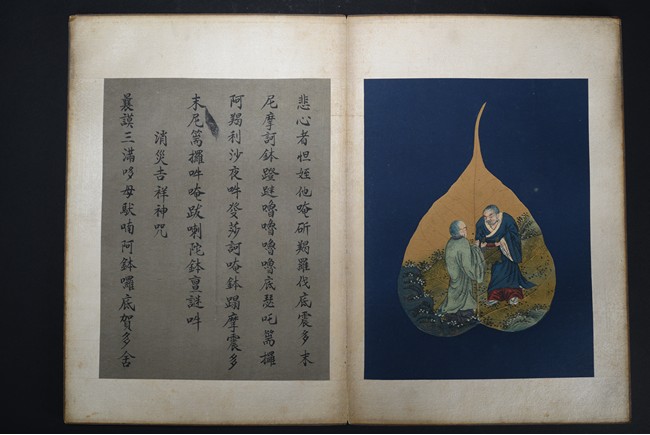 悲心者怛姪他唵斫羯羅伐底震多末
尼摩訶鉢蹬謎嚕嚕嚕嚕底瑟吒篤攞
阿羯利沙夜吽癹莎訶唵鉢蹋摩震多
末尼篤攞吽唵跋喇陀鉢亶謎吽
消災吉祥神咒
曩謨三滿哆母馱喃阿鉢囉底賀多舍